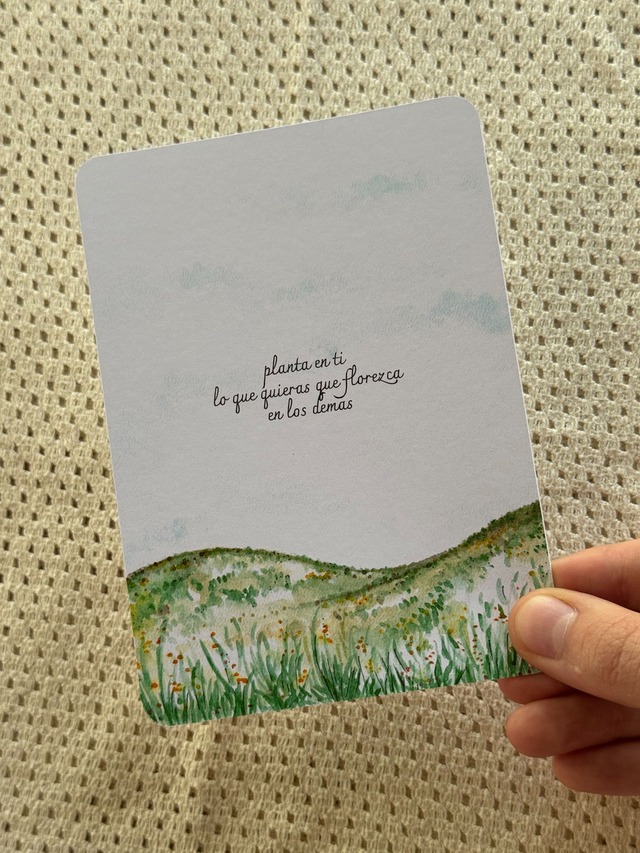 planta en ti
lo que quieras que florezca
en los demas